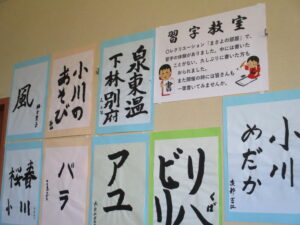 習字教室
○レクリエーション「まさよの部屋」で、
習字の体験がありました。中には書いた
ことがない、久しぶりに書いた方も
おられました。
また開催の時には皆さんも
一筆書いてみませんか。
風
小川の
あそび
泉東温
下林別府
小川
めだか
春川
桜小
バラ
アユ
リハ
ビリ